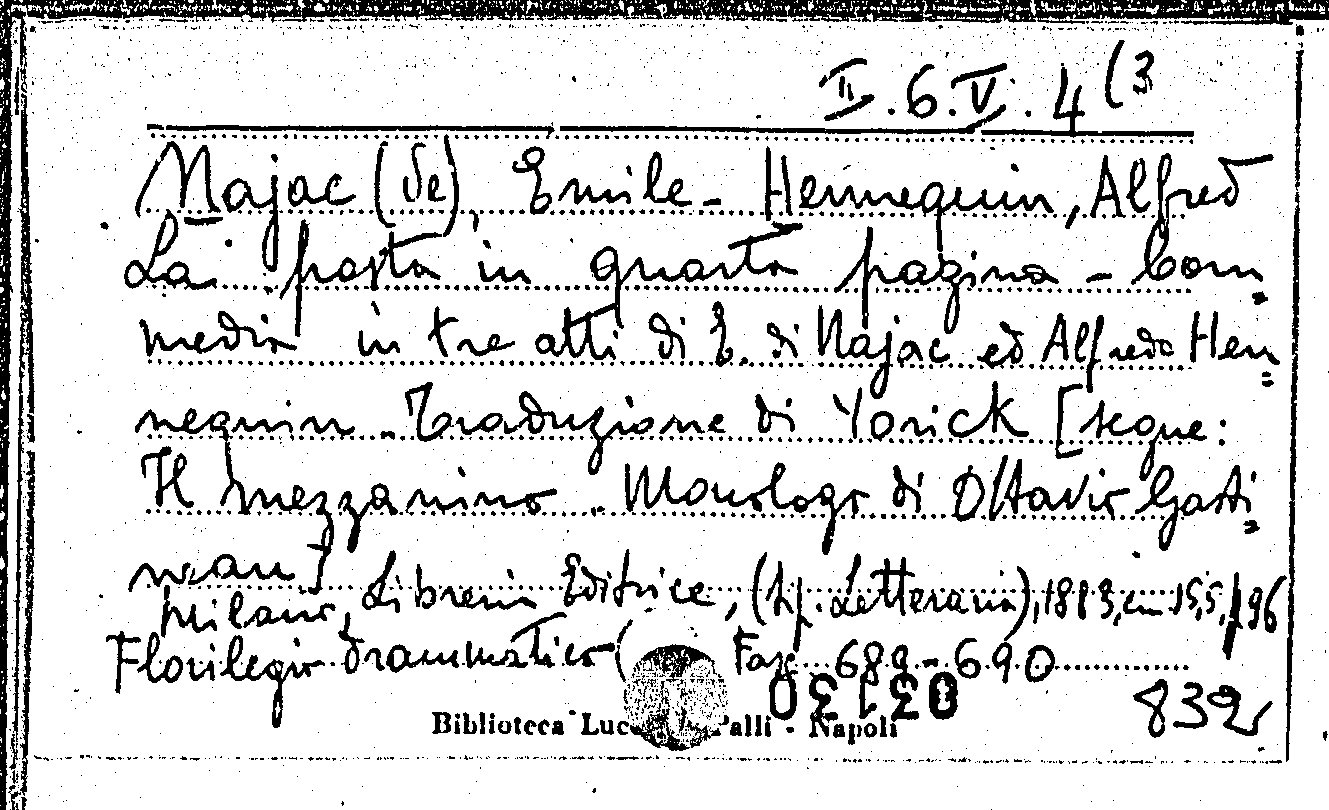 II.6.V.4(3
Najac (de), Emile - Hennequin, Alfred
La posta in quarta pagina - Com=
media in tre atti di E. di Najac ed Alfredo Hen=
nequin - Traduzione di Yorick [segue:
Il mezzanino. Monologo di Ottavio Gasti=
nean]
Milano, Libreria Editrice, (tip. Letteraria), 1883, cm 15,5, p. 96
Florilegio drammatico ( Fasc. 689-690
03130
832
Biblioteca Lucc Palli - Napoli